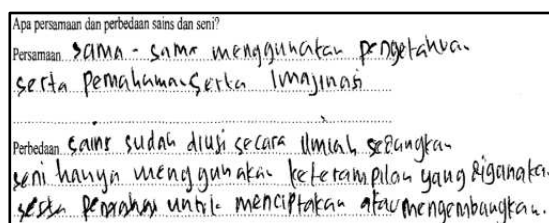 Apa persamaan dan perbedaan sains dan seni?
Persamaan sama - sama menggunakan pengetahuan
serta pemahaman serta imajinasi
Perbedaan sains sudah diuji secara ilmiah sedangkan
seni hanya menggunakan keterampilan yang digunakan
untuk menciptakan atau mengembangkan.